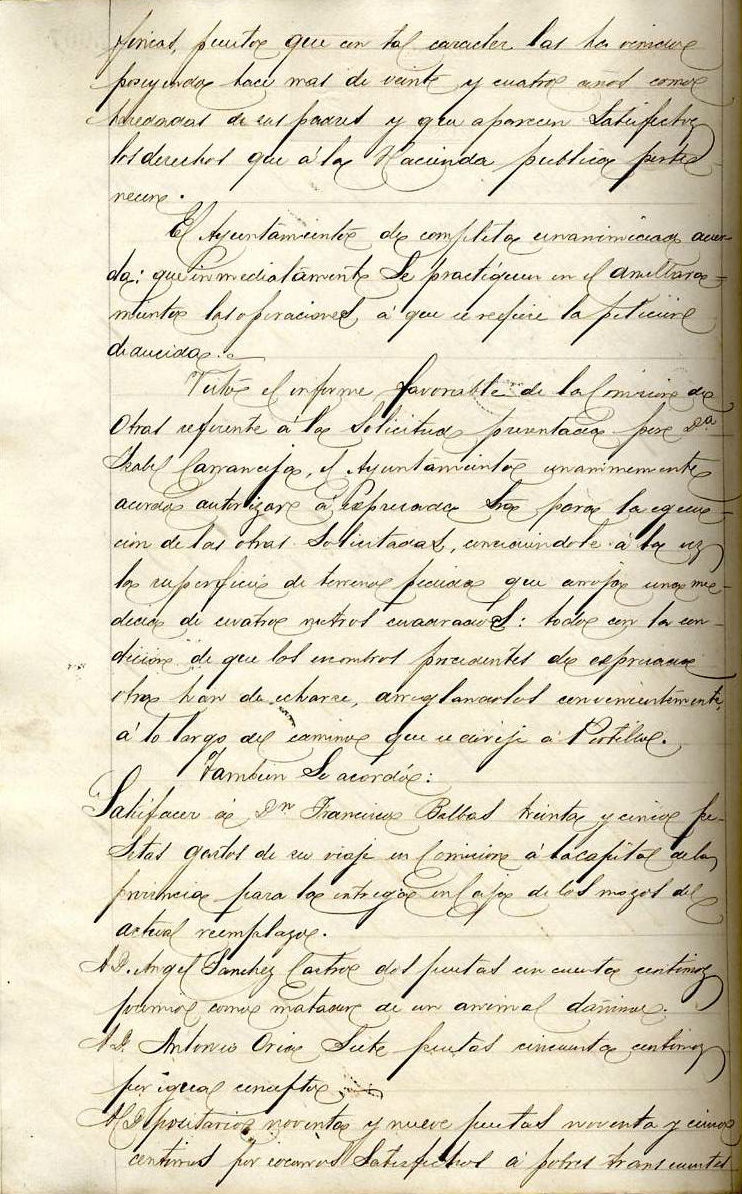 fincas, puestos que con tal caracter las ha venido
poseyendo hace mas de veinte y cuatro años como
heredadas de sus padres y que aparecen satisfechos
los derechos que á la Hacienda publica perte-
necen.
El Ayuntamiento de completa unanimidad acuer-
da: que inmediatamente se practiquen en el amillara-
miento las operaciones, á que se refiere la peticion
deducida.
Visto el informe favorable de la Comision de
Obras referente á la Solicitud presentada por Dª
Isabel Carranceja, el Ayuntamiento unanimemente
acordó autorizar á expresada Sra para la egecu-
cion de las obras solicitadas, concediendole á la vez
la superficie de terreno pedida que arroja una me-
dicion de cuatro metros cuadrados: todo con la con-
dicion de que los escombros procedentes de expresada
obra han de echarse, arreglandolos convenientemente,
á lo largo del camino que se dirije á Portillo.
Tambien Se acordó:
Satisfacer á Dn Francisco Balbas treinta y cinco pe-
setas gastos de su viaje en Comision á la capital de la
provincia para la entrega en Caja de los mozos del
actual reemplazo.
A D. Angel Sanchez Castro dos pesetas cincuenta centimos
premio como matador de un animal dañino.
A D. Antonio Oria Siete pesetas cincuenta centimos
por igual concepto
Al Depositario noventa y nueve pesetas noventa y cinco
centimos por socorros Satisfechos á pobres transeuntes